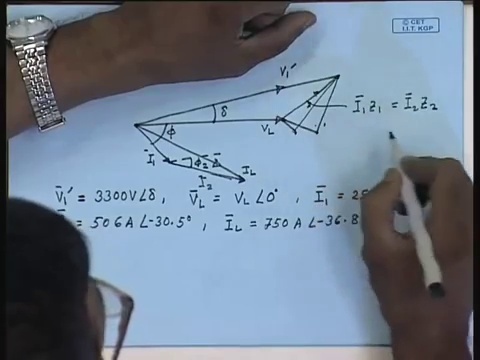 © CET
I.I.T. KGP
V₁'
δ
V_L
Ī₁Z₁ = Ī₂Z₂
φ
Ī₁
φ₂
I₂
I_L
V̄₁' = 3300V∠δ, V̄_L = V_L∠0°, Ī₁ = 25
= 506 A ∠-30.5°, Ī_L = 750 A ∠-36.8